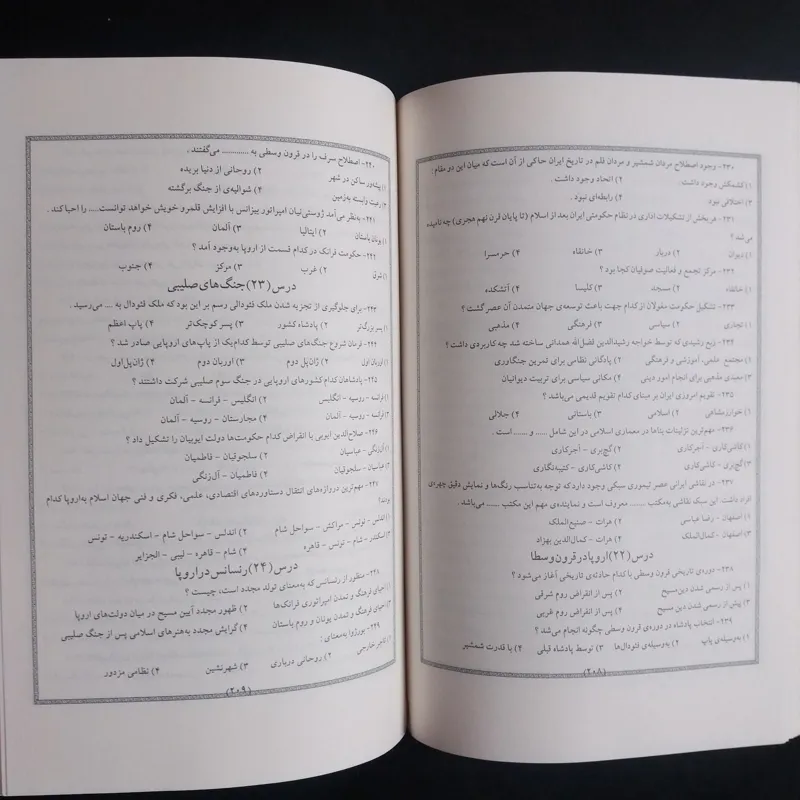 ۲۳۰- وجود اصطلاح مردان شمشیر و مردان قلم در تاریخ ایران حاکی از آن است که میان این دو مقام :
۱) کشمکش وجود داشت. ۲) اتحاد وجود داشت .
۳) اختلافی نبود ۴) رابطه‌ای نبود .
۲۳۱- هر بخش از تشکیلات اداری در نظام حکومتی ایران بعد از اسلام (تا پایان قرن نهم هجری) چه نامیده
می‌شد ؟
۱) دیوان ۲) دربار ۳) خانقاه ۴) حرمسرا
۲۳۲- مرکز تجمع و فعالیت صوفیان کجا بود ؟
۱) خانقاه ۲) مسجد ۳) کلیسا ۴) آتشکده
۲۳۳- تشکیل حکومت مغولان از کدام جهت باعث توسعه‌ی جهان متمدن آن عصر گشت ؟
۱) تجاری ۲) سیاسی ۳) فرهنگی ۴) مذهبی
۲۳۴- ربع رشیدی که توسط خواجه رشیدالدین فضل‌الله همدانی ساخته شد چه کاربردی داشت ؟
۱) مجتمع علمی، آموزشی و فرهنگی ۲) پادگانی نظامی برای تمرین جنگاوری
۳) معبدی مذهبی برای انجام امور دینی ۴) مکانی سیاسی برای تربیت دیوانیان
۲۳۵- تقویم امروزی ایران بر مبنای کدام تقویم قدیمی می‌باشد ؟
۱) خوارزمشاهی ۲) اسلامی ۳) باستانی ۴) جلالی
۲۳۶- مهم‌ترین تزئینات بناها در معماری اسلامی در این شامل ..... و ....... است .
۱) کاشی‌کاری - آجرکاری ۲) گچ‌بری - آجرکاری
۳) گچ‌بری - کاشی‌کاری ۴) کاشی‌کاری - کتیبه‌نگاری
۲۳۷- در نقاشی ایرانی عصر تیموری سبکی وجود دارد که توجه به‌تناسب رنگ‌ها و نمایش دقیق چهره‌ی
افراد داشت. این سبک نقاشی به‌مکتب ....... معروف است و نماینده‌ی مهم این مکتب ....... می‌باشد .
۱) اصفهان - رضا عباسی ۲) هرات - صنیع‌الملک
۳) اصفهان - کمال‌الملک ۴) هرات - کمال‌الدین بهزاد
درس (۲۲) اروپا در قرون وسطا
۲۳۸- دوره‌ی تاریخی قرون وسطی با کدام حادثه‌ی تاریخی آغاز می‌شود ؟
۱) پس از رسمی شدن دین مسیح ۲) پس از انقراض روم شرقی
۳) پیش از رسمی شدن دین مسیح ۴) پس از انقراض روم غربی
۲۳۹- انتخاب پادشاه در دوره‌ی قرون وسطی چگونه انجام می‌شد ؟
۱) به‌وسیله‌ی پاپ ۲) به‌وسیله‌ی فئودال‌ها ۳) توسط پادشاه قبلی ۴) با قدرت شمشیر
(۲۰۸)
۲۴۰- اصطلاح سرف را در قرون وسطی به ............ می‌گفتند .
۱) پیشه‌ور ساکن در شهر ۲) روحانی از دنیا بریده
۳) رعیت وابسته به‌زمین ۴) شوالیه‌ی از جنگ برگشته
۲۴۱- به‌نظر می‌آمد ژوستی‌نیان امپراتور بیزانس با افزایش قلمرو خویش خواهد توانست..... را احیا کند .
۱) یونان باستان ۲) ایتالیا ۳) آلمان ۴) روم باستان
۲۴۲- حکومت فرانک در کدام قسمت از اروپا به‌وجود آمد ؟
۱) شرق ۲) غرب ۳) مرکز ۴) جنوب
درس (۲۳) جنگ‌های صلیبی
۲۴۳- برای جلوگیری از تجزیه شدن ملک فئودالی رسم بر این بود که ملک فئودال به .... می‌رسید .
۱) پسر بزرگ‌تر ۲) پادشاه کشور ۳) پسر کوچک‌تر ۴) پاپ اعظم
۲۴۴- فرمان شروع جنگ‌های صلیبی توسط کدام‌یک از پاپ‌های اروپایی صادر شد ؟
۱) اوربان اول ۲) ژان‌پل دوم ۳) اوربان دوم ۴) ژان‌پل اول
۲۴۵- پادشاهان کدام کشورهای اروپایی در جنگ سوم صلیبی شرکت داشتند ؟
۱) فرانسه - روسیه - انگلیس ۲) انگلیس - فرانسه - آلمان
۳) فرانسه - روسیه - آلمان ۴) مجارستان - روسیه - آلمان
۲۴۶- صلاح‌الدین ایوبی با انقراض کدام حکومت‌ها دولت ایوبیان را تشکیل داد ؟
۱) آل‌زنگی - عباسیان ۲) سلجوقیان - فاطمیان
۳) عباسیان - سلجوقیان ۴) فاطمیان - آل‌زنگی
۲۴۷- مهم‌ترین دروازه‌های انتقال دستاوردهای اقتصادی، علمی، فکری و فنی جهان اسلام به‌اروپا کدام
بودند؟
۱) اندلس - تونس - مراکش - سواحل شام ۲) اندلس - سواحل شام - اسکندریه - تونس
۳) اسکندر - شام - تونس - قاهره ۴) شام - قاهره - لیبی - الجزایر
درس (۲۴) رنسانس در اروپا
۲۴۸- منظور از رنسانس که به‌معنای تولد مجدد است، چیست ؟
۱) احیای فرهنگ و تمدن امپراتوری فرانک‌ها ۲) ظهور مجدد آیین مسیح در میان دولت‌های اروپا
۳) احیای فرهنگ و تمدن یونان و روم باستان ۴) گرایش مجدد به‌هنرهای اسلامی پس از جنگ صلیبی
۲۴۹- بورژوا به‌معنای :
۱) تاجر خارجی ۲) روحانی درباری ۳) شهرنشین ۴) نظامی مزدور
(۲۰۹)